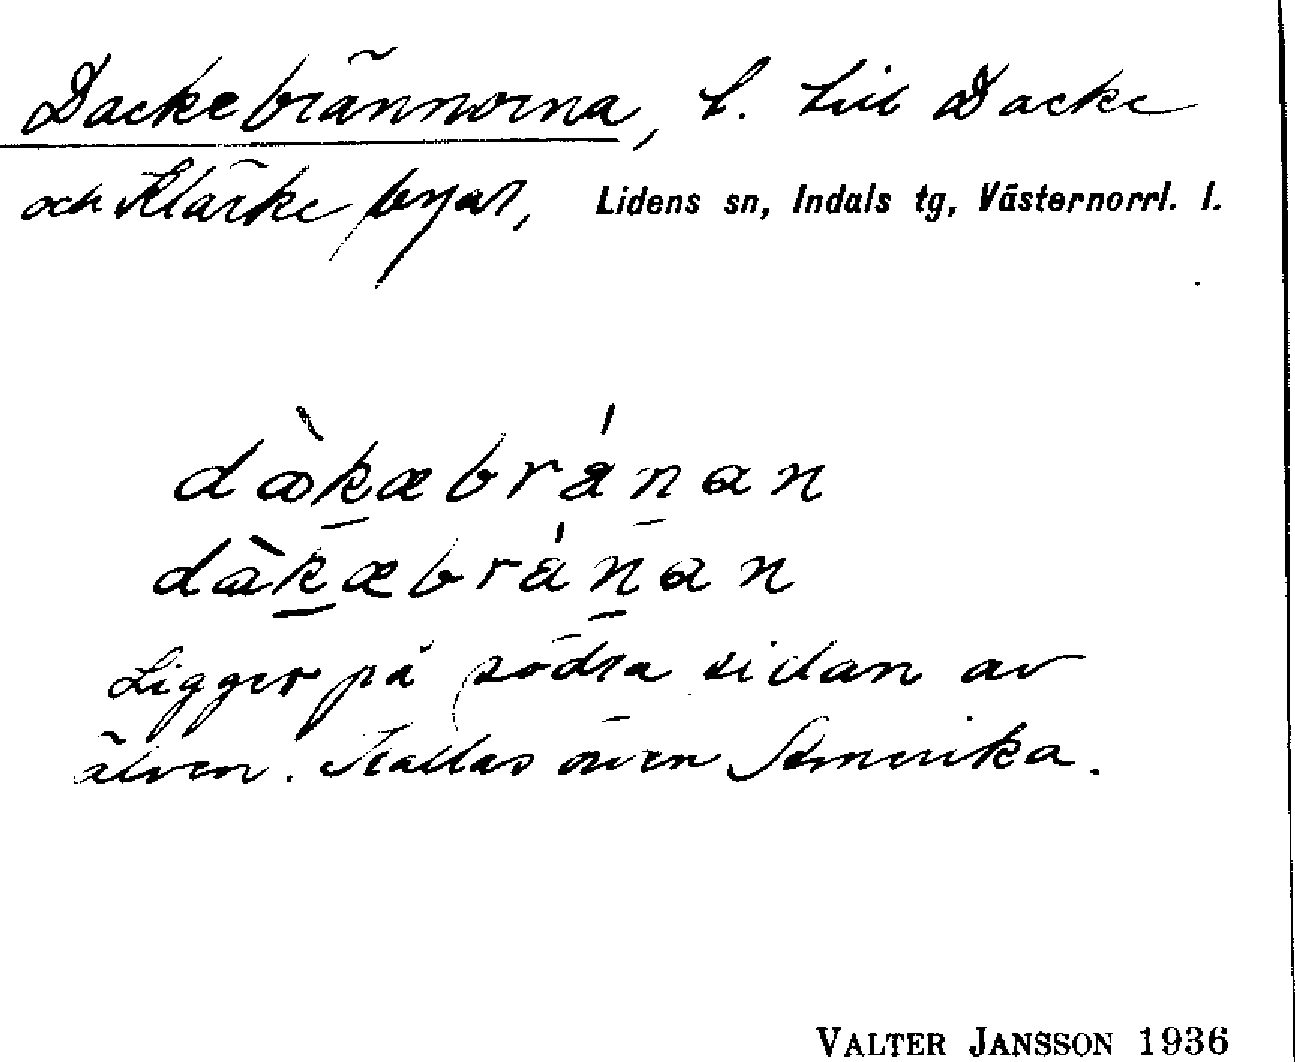 Dackebrännorna, l. till Dacke
och Klärke byar, Lidens sn, Indals tg, Västernorrl. l.
dàkæbránan
dàkæbránan
Ligger på södra sidan av
älven. Kallas även Amerika.
VALTER JANSSON 1936